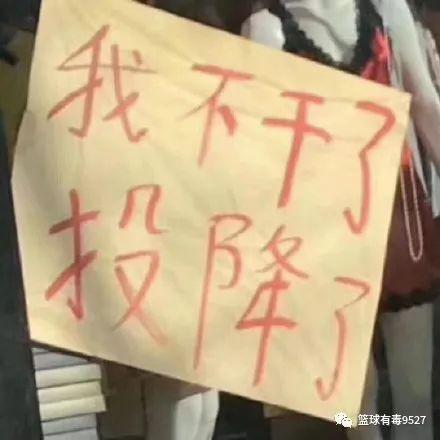 我不干了
投降了
篮球有毒9527